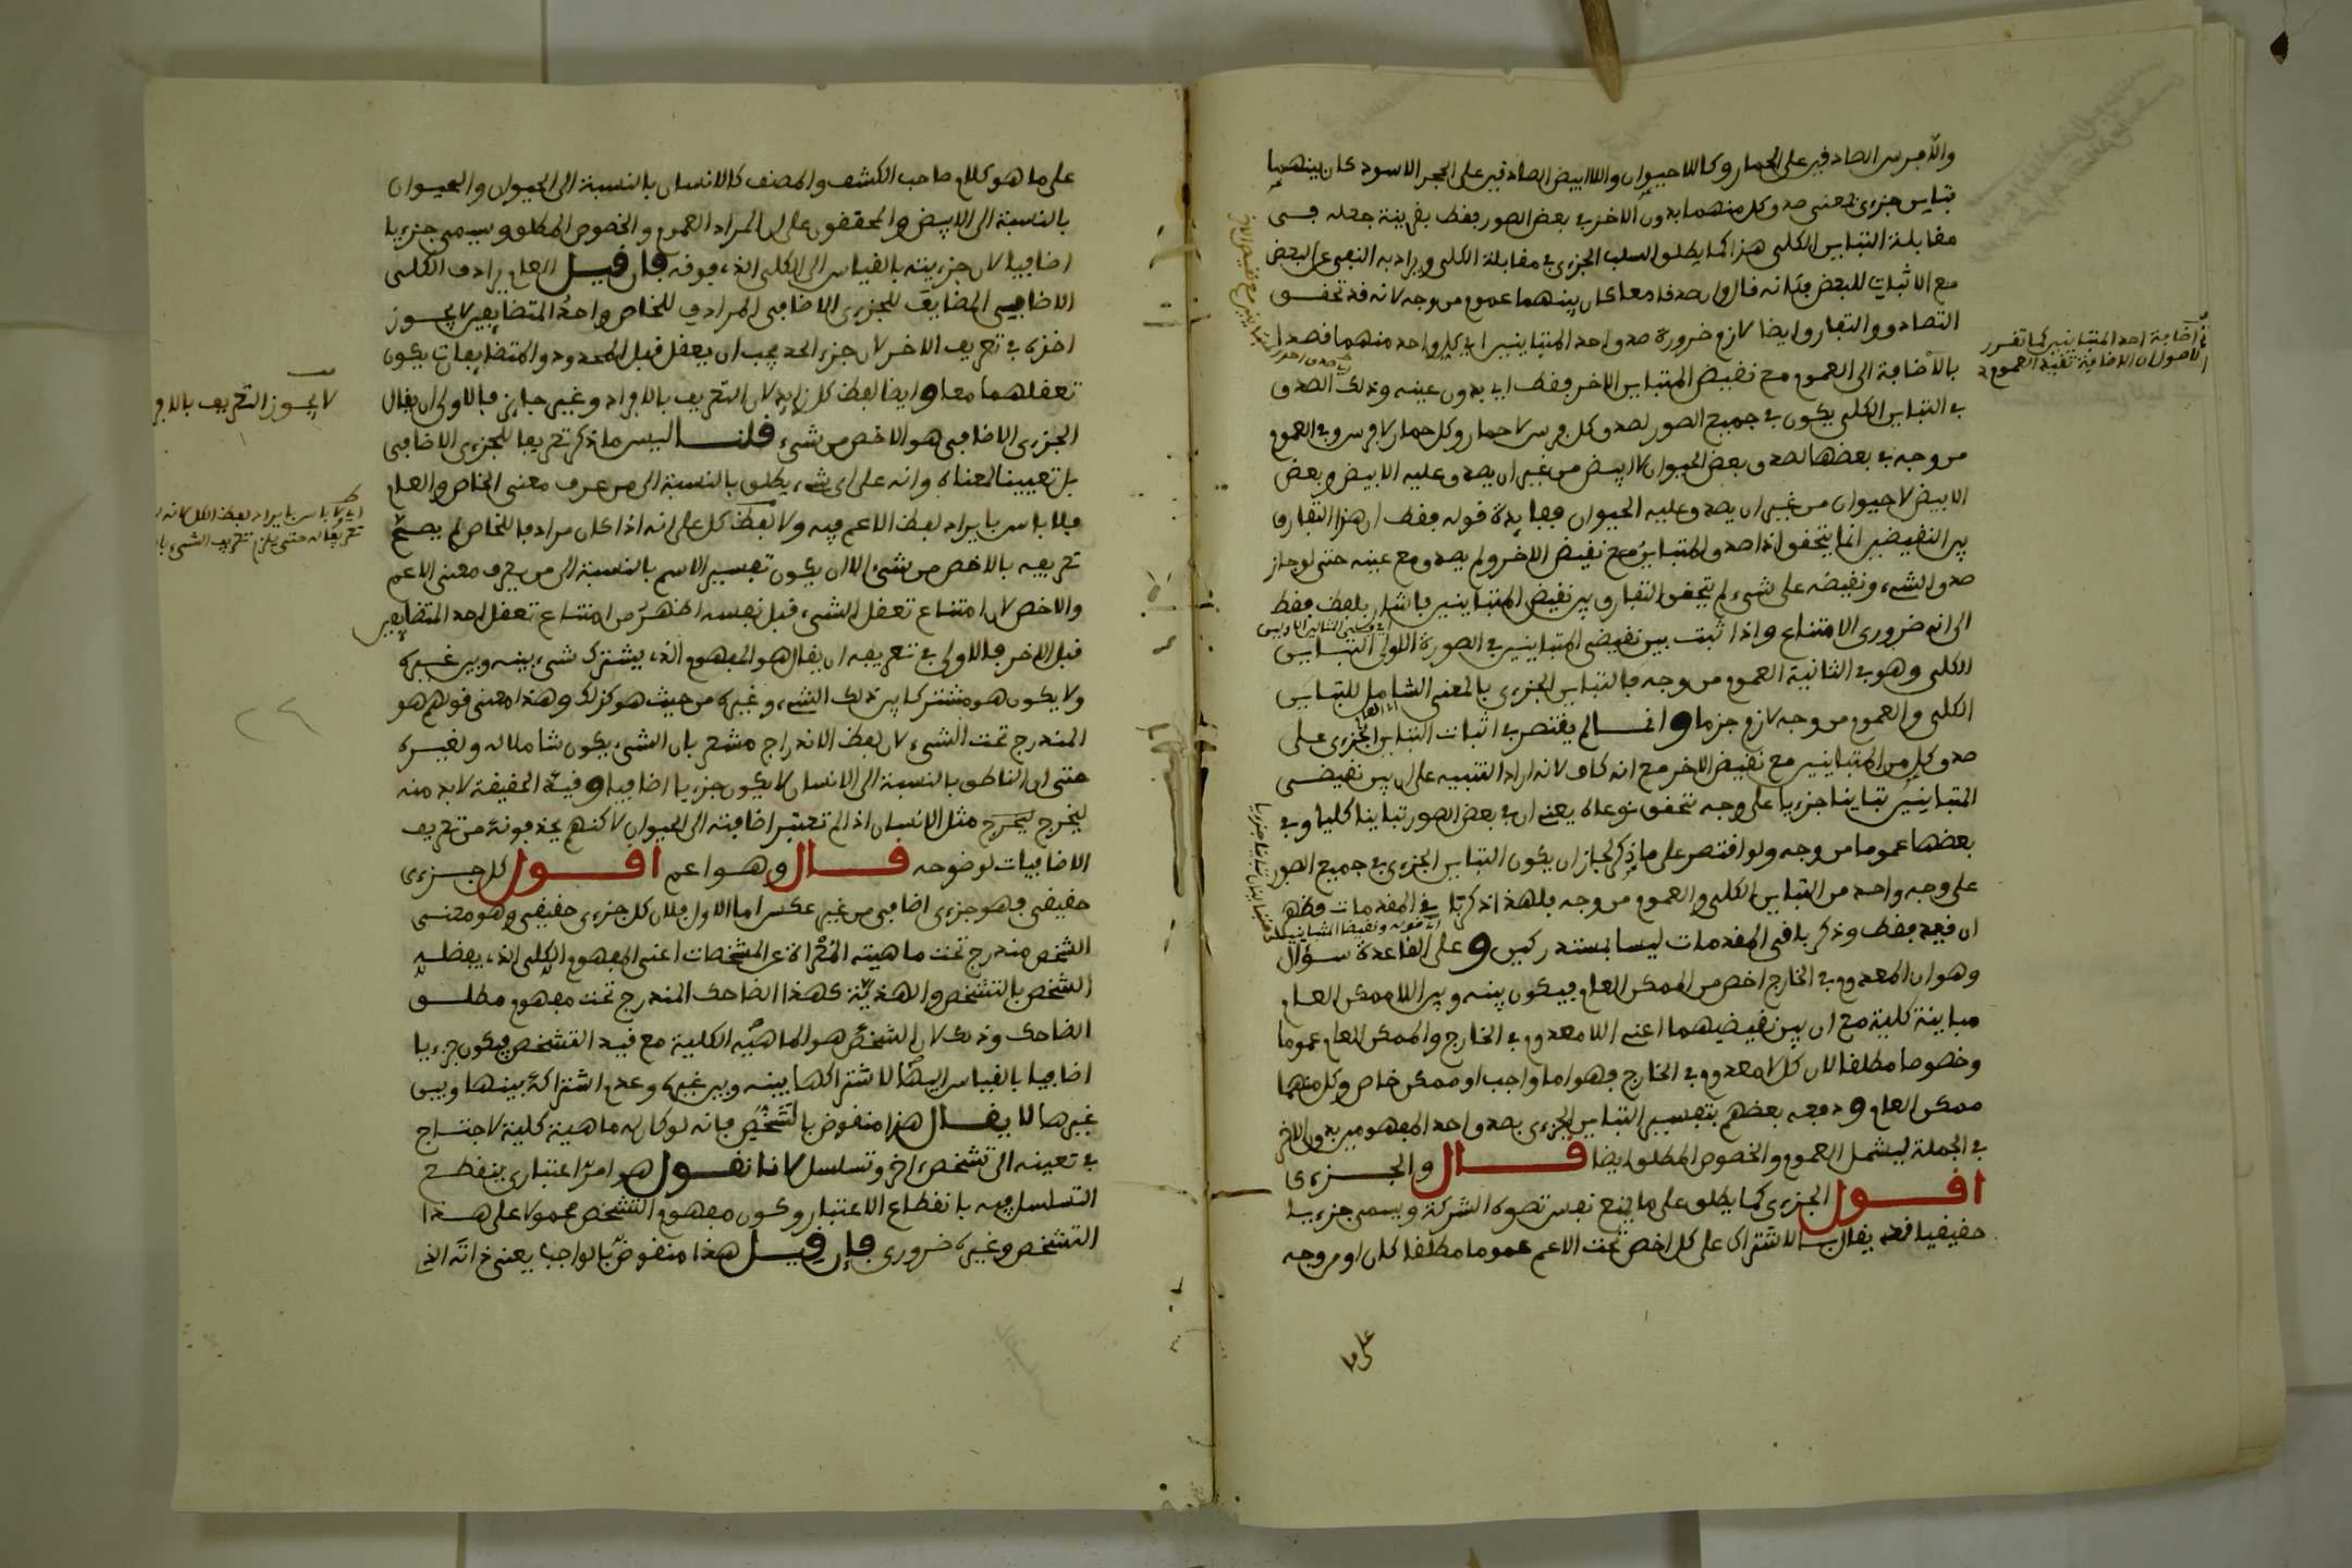 واللافرس الصادقين على الحمار وكاللاحيوان واللاابيض الصادقين على الحجر الاسود كان بينهما
تباين جزءى لمعنى صدق كل منهما بدون الاخر في بعض الصور فقط بقرينة جعله في
مقابلة التباين الكلى هذا كما يطلق السلب الجزءى في مقابلة الكلى ويراد به النفى عن البعض
مع الاثبات للبعض فكانه قال وان صدقا معا كان بينهما عموم من وجه لانه قد تحقق
التصادق والتفارق ايضا لازم ضرورة صدق احد المتباينين اى كل واحد منهما قصدا
بالاضافة الى العموم مع نقيض المتباين الاخر فقط اى بدون عينه وذلك الصدق
في التباين الكلى يكون في جميع الصور لصدق كل فرس لا حمار وكل حمار لا فرس وفى العموم
من وجه في بعضها لصدق بعض الحيوان لا ابيض من غير ان يصدق عليه الابيض وبعض
الابيض لا حيوان من غير ان يصدق عليه الحيوان ففايدة قوله فقط ان هذا التفارق
بين النقيضين انما يتحقق اذا صدق المتباين مع نقيض الاخر ولم يصدق مع عينه حتى لو جاز
صدق الشىء ونقيضه على شىء لم يتحقق التفارق بين نقيض المتباينين فاشار بلفظ فقط
الى انه ضرورى الامتناع واذا ثبت بين نقيضى المتباينين في الصورة الاولى التباين
الكلى وهو في الثانية العموم من وجه فالتباين الجزءى بالمعنى الشامل للتباين
الكلى والعموم من وجه لازم جزما وانما لم يقتصر في اثبات التباين الجزءى على
صدق كل من المتباينين مع نقيض الاخر مع انه كاف لانه اراد التنبيه على ان بين نقيضى
المتباينين تباينا جزءيا على وجه تحقق نوعاه يعنى ان في بعض الصور تباينا كليا وفى
بعضها عموما من وجه ولو اقتصر على ما ذكر لجاز ان يكون التباين الجزءى في جميع الصور
على وجه واحد من التباين الكلى والعموم من وجه فلهذا ذكر في المقدمات فظهر
ان قيد فقط وذكر باقى المقدمات ليسا بمستدركين وعلى القاعدة سؤال
وهو ان المعدوم في الخارج اخص من الممكن العام فيكون بينه وبين اللاممكن العام
مباينة كلية مع ان بين نقيضيهما اعنى اللامعدوم في الخارج والممكن العام عموما
وخصوصا مطلقا لان كل لا معدوم في الخارج فهو اما واجب او ممكن خاص وكل منهما
ممكن العام ودفعه بعضهم بتفسير التباين الجزءى بصدق احد المفهومين بدون الاخر
في الجملة ليشمل العموم والخصوص المطلق ايضا قال والجزءى
اقول الجزءى كما يطلق على ما يمنع نفس تصوره الشركة ويسمى جزءيا
حقيقيا فقد يقال بالاشتراك على كل اخص تحت الاعم عموما مطلقا كان او من وجه
على ما
اضافة احد المتباينين لما تقرر
الاصول ان الاضافة تفيد العموم
على ما هو كلام صاحب الكشف والمصنف كالانسان بالنسبة الى الحيوان والحيوان
بالنسبة الى الابيض والمحققون على ان المراد العموم والخصوص المطلق ويسمى جزءيا
اضافيا لان جزءيته بالقياس الى الكلى الذى فوقه فان قيل العام يرادف الكلى
الاضافى المضايف للجزءى الاضافى المرادف للخاص واحد المتضايفين لا يجوز
اخذه في تعريف الاخر لان جزء الحد يجب ان يعقل قبل المحدود والمتضايفان يكون
تعقلهما معا وايضا لفظ كل زايد لان التعريف بالافراد وغير جايز فالاولى ان يقال
الجزءى الاضافى هو الاخص من شىء قلنا ليس ما ذكر تعريفا للجزءى الاضافى
بل تعيينا لمعناه وانه على اى شىء يطلق بالنسبة الى من عرف معنى الخاص والعام
فلا باس بايراد لفظ الاعم فيه ولا لفظ كل على انه اذا كان مرادفا للخاص لم يصح
تعريفه بالاخص من شىء الا ان يكون تفسير الاسم بالنسبة الى من يعرف معنى الاعم
والاخص لان امتناع تعقل الشىء قبل نفسه اظهر من امتناع تعقل احد المتضايفين
قبل الاخر فالاولى في تعريفه ان يقال هو المفهوم الذى يشترك شىء بينه وبين غيره
ولا يكون هو مشتركا بين ذلك الشىء وغيره من حيث هو كذلك وهذا معنى قولهم هو
المندرج تحت الشىء لان لفظ الاندراج مشعر بان الشىء يكون شاملا له ولغيره
حتى ان الناطق بالنسبة الى الانسان لا يكون جزءيا اضافيا وقيد الحقيقة لا بد منه
ليخرج مثل الانسان اذا لم تعتبر اضافته الى الحيوان لاكنهم يحذفونه من تعريف
الاضافيات لوضوحه قال وهو اعم اقول كل جزءى
حقيقى فهو جزءى اضافى من غير عكس اما الاول فلان كل جزءى حقيقى وهو معنى
الشخص مندرج تحت ماهيته المعراة عن المشخصات اعنى المفهوم الكلى الذى يفضله
الشخص بالتشخص والهذية كهذا الضاحك المندرج تحت مفهوم مطلق
الضاحك وذلك لان الشخص هو الماهية الكلية مع قيد التشخص فيكون جزءيا
اضافيا بالقياس اليها لاشتراكها بينه وبين غيره وعدم اشتراكه بينها وبين
غيرها لا يقال هذا منقوض بالتشخص فانه لو كان له ماهية كلية لاحتاج
في تعينه الى تشخص اخر وتسلسل لانا نقول هو امر اعتبارى ينقطع
التسلسل فيه بانقطاع الاعتبار وكون مفهوم التشخص محمولا على هذا
التشخص وغيره ضرورى فان قيل هذا منقوض بالواجب يعنى ذاته الذى
لا يجوز التعريف بالافر
اى لا باس بايراد لفظ الكل لانه
تعريفا له حتى يلزم تعريف الشىء